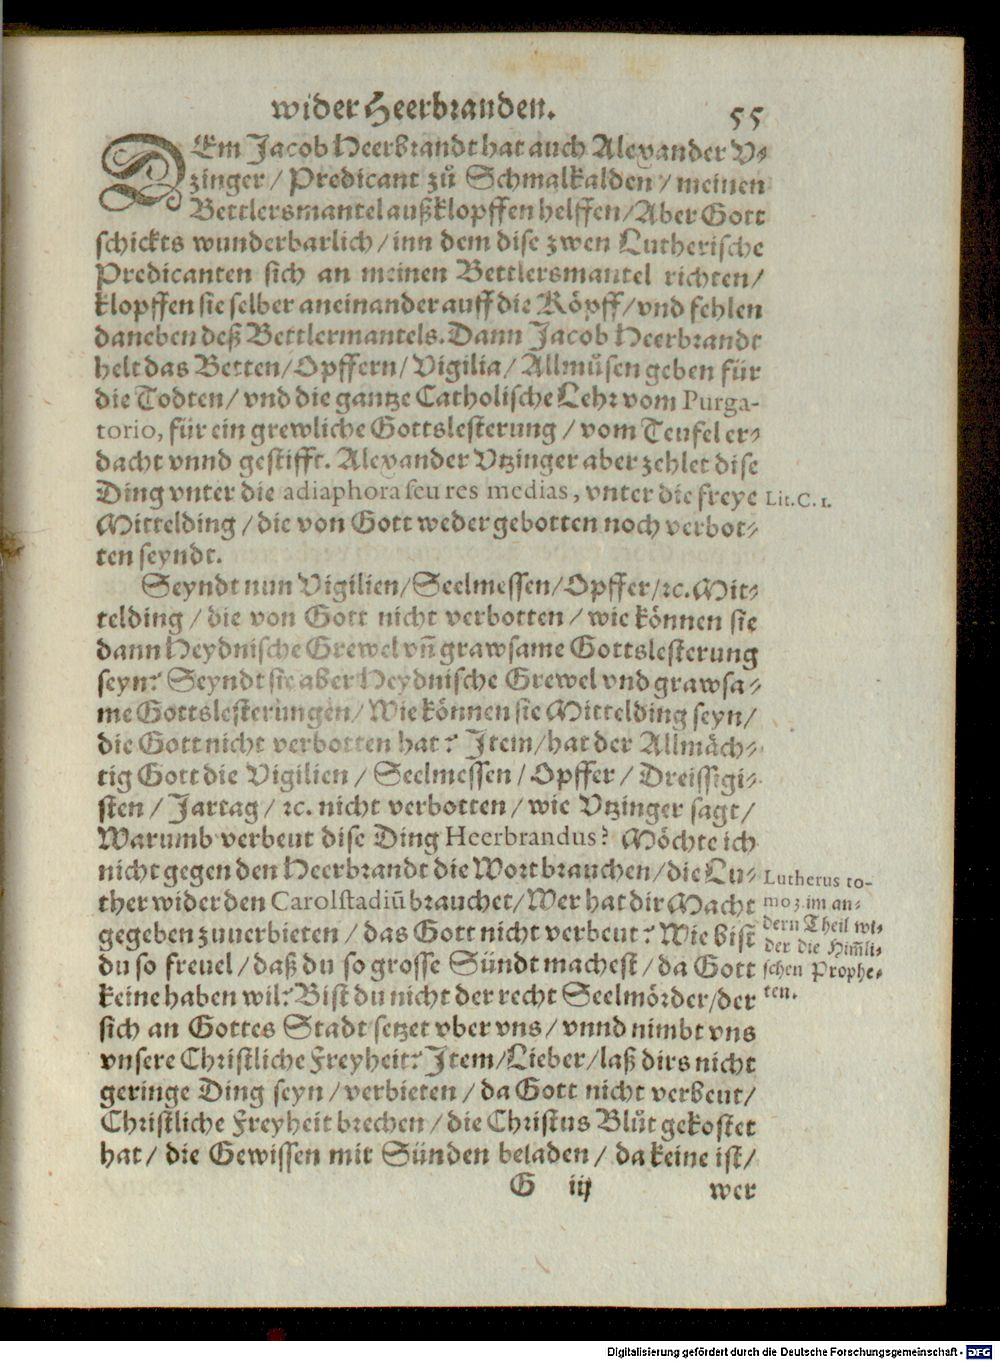 wider Heerbranden. 55
DEm Jacob Heerbrandt hat auch Alexander V-
tzinger / Predicant zů Schmalkalden / meinen
Bettlersmantel außklopffen helffen / Aber Gott
schickts wunderbarlich / inn dem dise zwen Lutherische
Predicanten sich an meinen Bettlersmantel richten /
klopffen sie selber aneinander auff die Köpff / vnd fehlen
daneben deß Bettlermantels. Dann Jacob Heerbrandt
helt das Betten / Opffern / Vigilia / Allmůsen geben für
die Todten / vnd die gantze Catholische Lehr vom Purga-
torio, für ein grewliche Gottslesterung / vom Teufel er-
dacht vnnd gestifft. Alexander Vtzinger aber zehlet dise
Ding vnter die adiaphora seu res medias, vnter die freye
Lit. C. 1.
Mittelding / die von Gott weder gebotten noch verbot-
ten seyndt.
Seyndt nun Vigilien / Seelmessen / Opffer / ꝛc. Mit-
telding / die von Gott nicht verbotten / wie können sie
dann Heydnische Grewel vñ grawsame Gottslesterung
seyn? Seyndt sie aber Heydnische Grewel vnd grawsa-
me Gottslesterungen / Wie können sie Mittelding seyn /
die Gott nicht verbotten hat? Item / hat der Allmäch-
tig Gott die Vigilien / Seelmessen / Opffer / Dreissigi-
sten / Jartag / ꝛc. nicht verbotten / wie Vtzinger sagt /
Warumb verbeut dise Ding Heerbrandus? Möchte ich
nicht gegen den Heerbrandt die Wort brauchen / die Lu-
ther wider den Carolstadiū brauchet / Wer hat dir Macht
gegeben zuuerbieten / das Gott nicht verbeut? Wie bist
du so freuel / daß du so grosse Sündt machest / da Gott
keine haben wil? Bist du nicht der recht Seelmörder / der
Lutherus to-
mo 3. im an-
dern Theil wi-
der die Him̃li-
schen Prophe-
ten.
sich an Gottes Stadt setzet vber vns / vnnd nimbt vns
vnsere Christliche Freyheit? Item / Lieber / laß dirs nicht
geringe Ding seyn / verbieten / da Gott nicht verbeut /
Christliche Freyheit brechen / die Christus Blůt gekostet
hat / die Gewissen mit Sünden beladen / da keine ist /
G iij wer
Digitalisierung gefördert durch die Deutsche Forschungsgemeinschaft - DFG